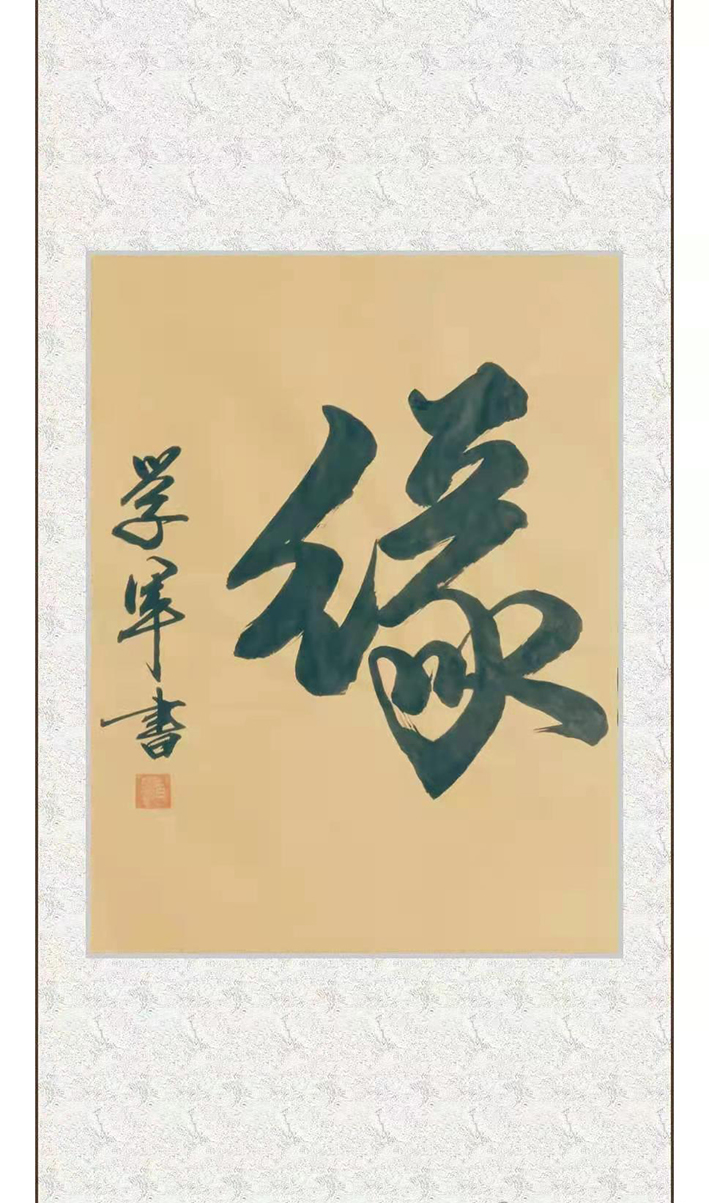 缘
学军书